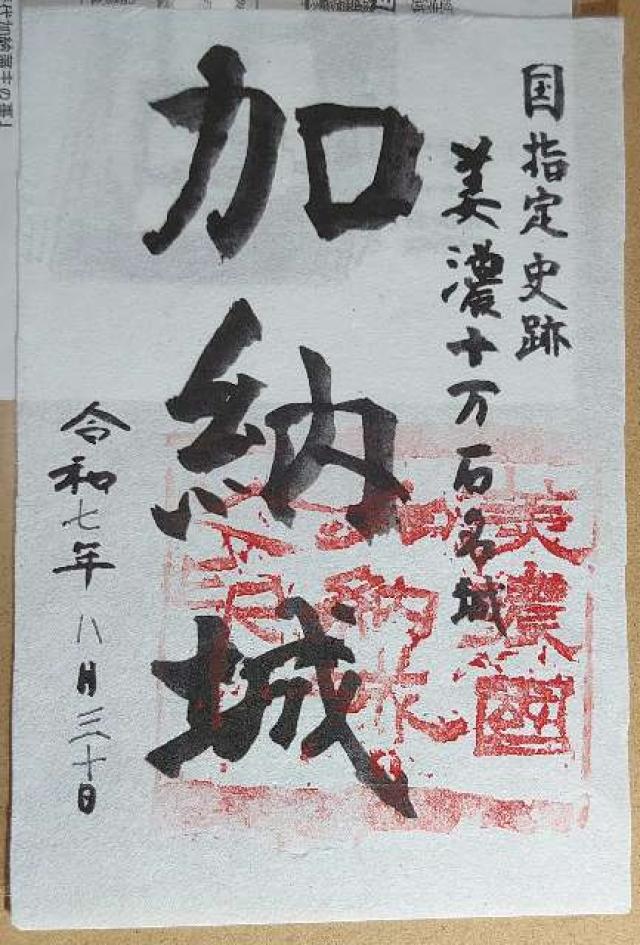 国指定史跡
美濃十万石名城
加納城
令和七年八月三十日
美濃國
加納